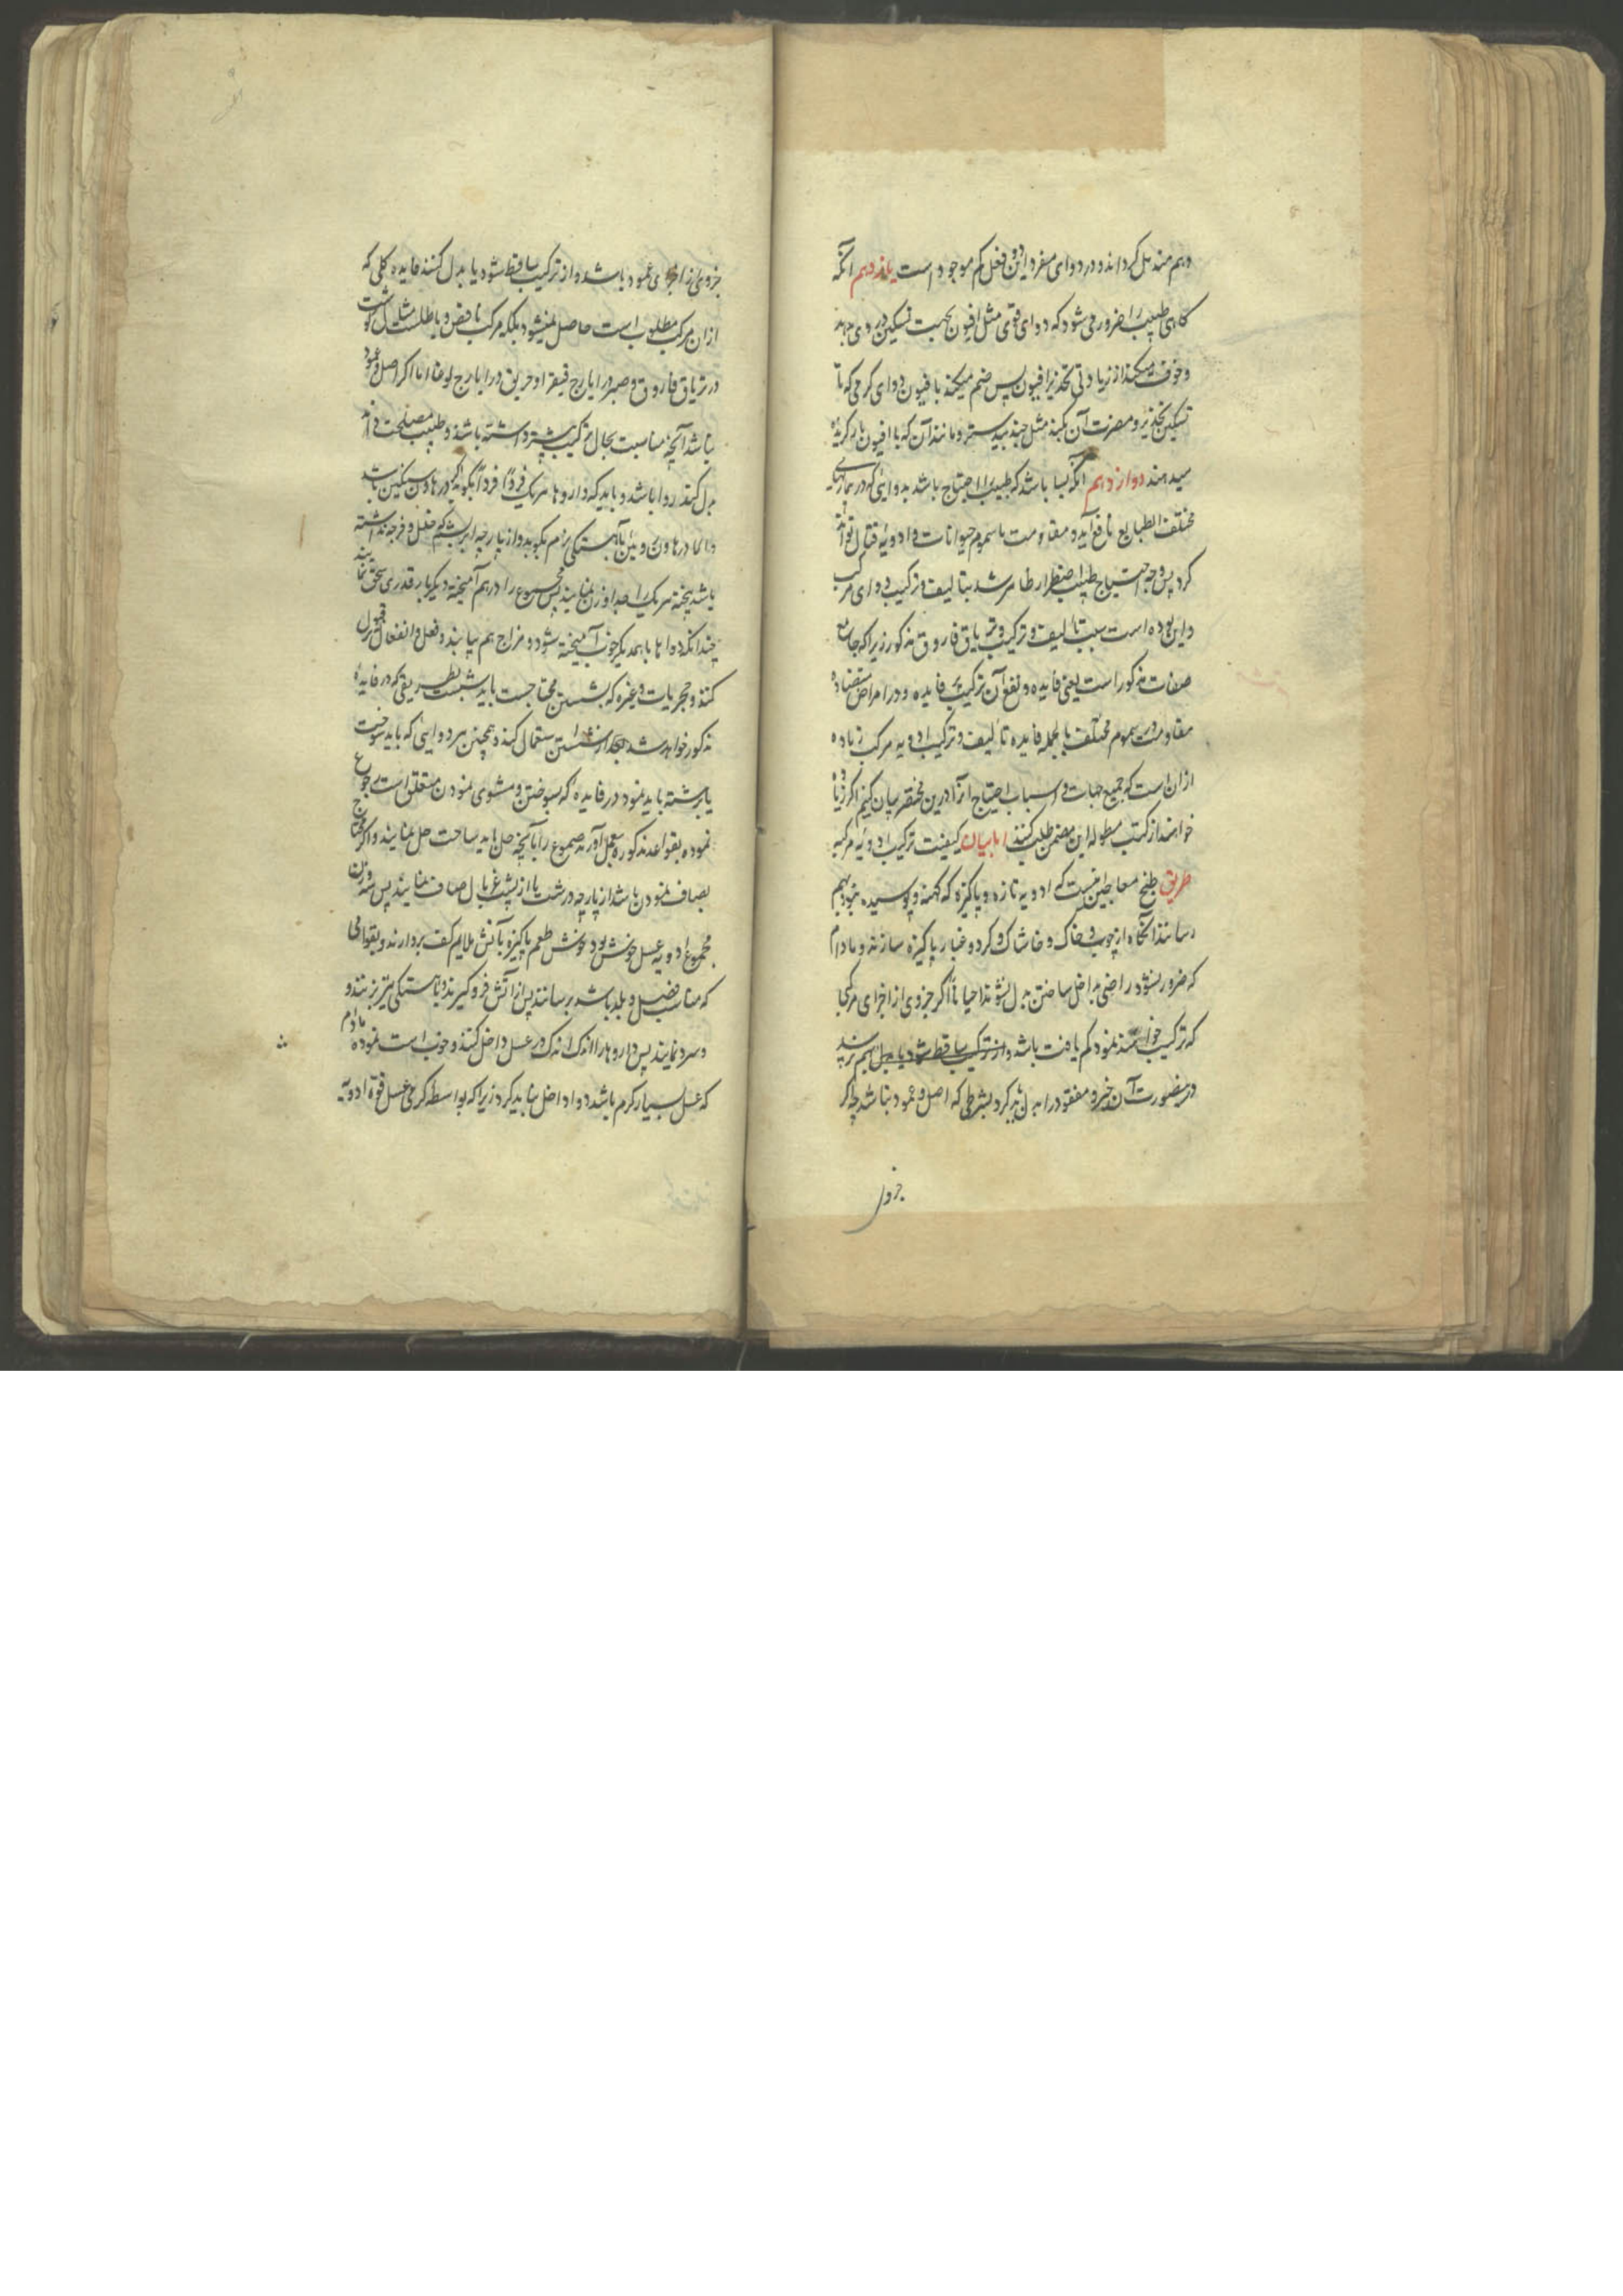 وهم مندمل گرداند و در دوای مفرد این دو فعل کم موجود است یازدهم آنکه
گاهی طبیب را ضرور می شود که دوای قوی مثل افیون بجهت تسکین دردی بدهد
و خوف میکند از زیادتی تخدیر افیون پس ضم میکند با افیون دوای گرمی که تا
تسکین تخدیر و مضرت آن بکند مثل جندبیدستر و مانند آن که با افیون
میدهند دوازدهم آنکه بسا باشد که طبیب را احتیاج باشد بدوایی که در بیماریهای
مختلف الطبایع نافع آید و مقاومت با سموم حیوانات و ادویه قتال تواند
کرد پس وجه احتیاج طبیب اضطرار ظاهر شد بتالیف و ترکیب دوای مرکب
و این بوده است سبب تألیف و ترکیب تریاق فاروق مذکور زیرا که جامع
صفات مذکور است یعنی فایده و نفع آن ترکیب فایده و در امراض متضاده
مقاومت سموم مختلف بالجمله فایده تألیف و ترکیب ادویه مرکب زیاده
از آن است که جمیع جهات و اسباب احتیاج آنرا درین مختصر بیان کنیم اگر زیاده
خواهند از کتب مطوله این مضمن طلب کنند اما بیان کیفیت ترکیب ادویه مرکبه
طریق طبخ معاجین اینست که ادویه تازه و پاکیزه که کهنه و پوسیده نبود بهم
رسانند آنگاه از چوب و خاک و خاشاک و گرد و غبار پاکیزه سازند و مادام
که ضرور نشود راضی بداخل ساختن بدل نشوند احیاناً اگر جزوی از اجزای مرکبات
که ترکیب خواهند نمود کم یافت باشد و از ترکیب ساقط شود یا بدل بهم نرسد
درینصورت آن جزو مفقود را بدل باید کرد بشرطی که اصل و عمود نباشد چه اگر
جزوی
جزوی از اجزای عمود باشد و از ترکیب ساقط شود یا بدل کنند فایده کلی که
از آن مرکب مطلوب است حاصل نمیشود بلکه مرکب ناقص و باطلست مثلاً گوشت
در تریاق فاروق و صبر در ایارج فیقرا و خربق در ایارج لوغاذیا اما اگر اصل و عمود
نباشد آنچه مناسبت بحال ترکیب بیشتر داشته باشد و طبیب مصلحت داند
بدل کند روا باشد و باید که داروها هر یک فرداً فرداً بکوبد اگر در هاون سنگین باشد
والا در هاون رویین بآهستگی نرم بکوبد و از پارچه ابریشم که خلل و فرجه نداشته
باشد بیخته هر یک را جدا وزن نمایند پس مجموع را درهم آمیخته دیگر بار قدری سحق نمایند
چندانکه دواها با همدیگر خوب آمیخته شود و مزاج هم بیابند و فعل و انفعال قبول
کنند و حجریات و غیره که بشستن محتاجست باید شست بطریقی که در فایده
مذکور خواهد شد بعد از شستن استعمال کنند و همچنین هر دوایی که باید سوخت
یا برشته باید نمود در فایده که بسوختن و مشوی نمودن متعلق است رجوع
نموده بقواعد مذکوره بعمل آورند صموغ را با آنچه حل باید ساخت حل نمایند و اگر محتاج
بصاف نمودن باشد از پارچه درشت یا از پشت غربال صاف نمایند پس سه وزن
مجموع ادویه عسل خوش بو و خوش طعم پاکیزه بآتش ملایم کف بردارند و بقوامی
که مناسب فصل و بلد باشد برسانند پس از آتش فرو گیرند و بآهستگی تیز بزنند و
و سرد نمایند پس داروها را اندک اندک در عسل داخل کنند و خوب است نموده مادام
که عسل بسیار گرم باشد دوا داخل نباید کرد زیرا که بواسطه گرمی عسل قوة ادویه